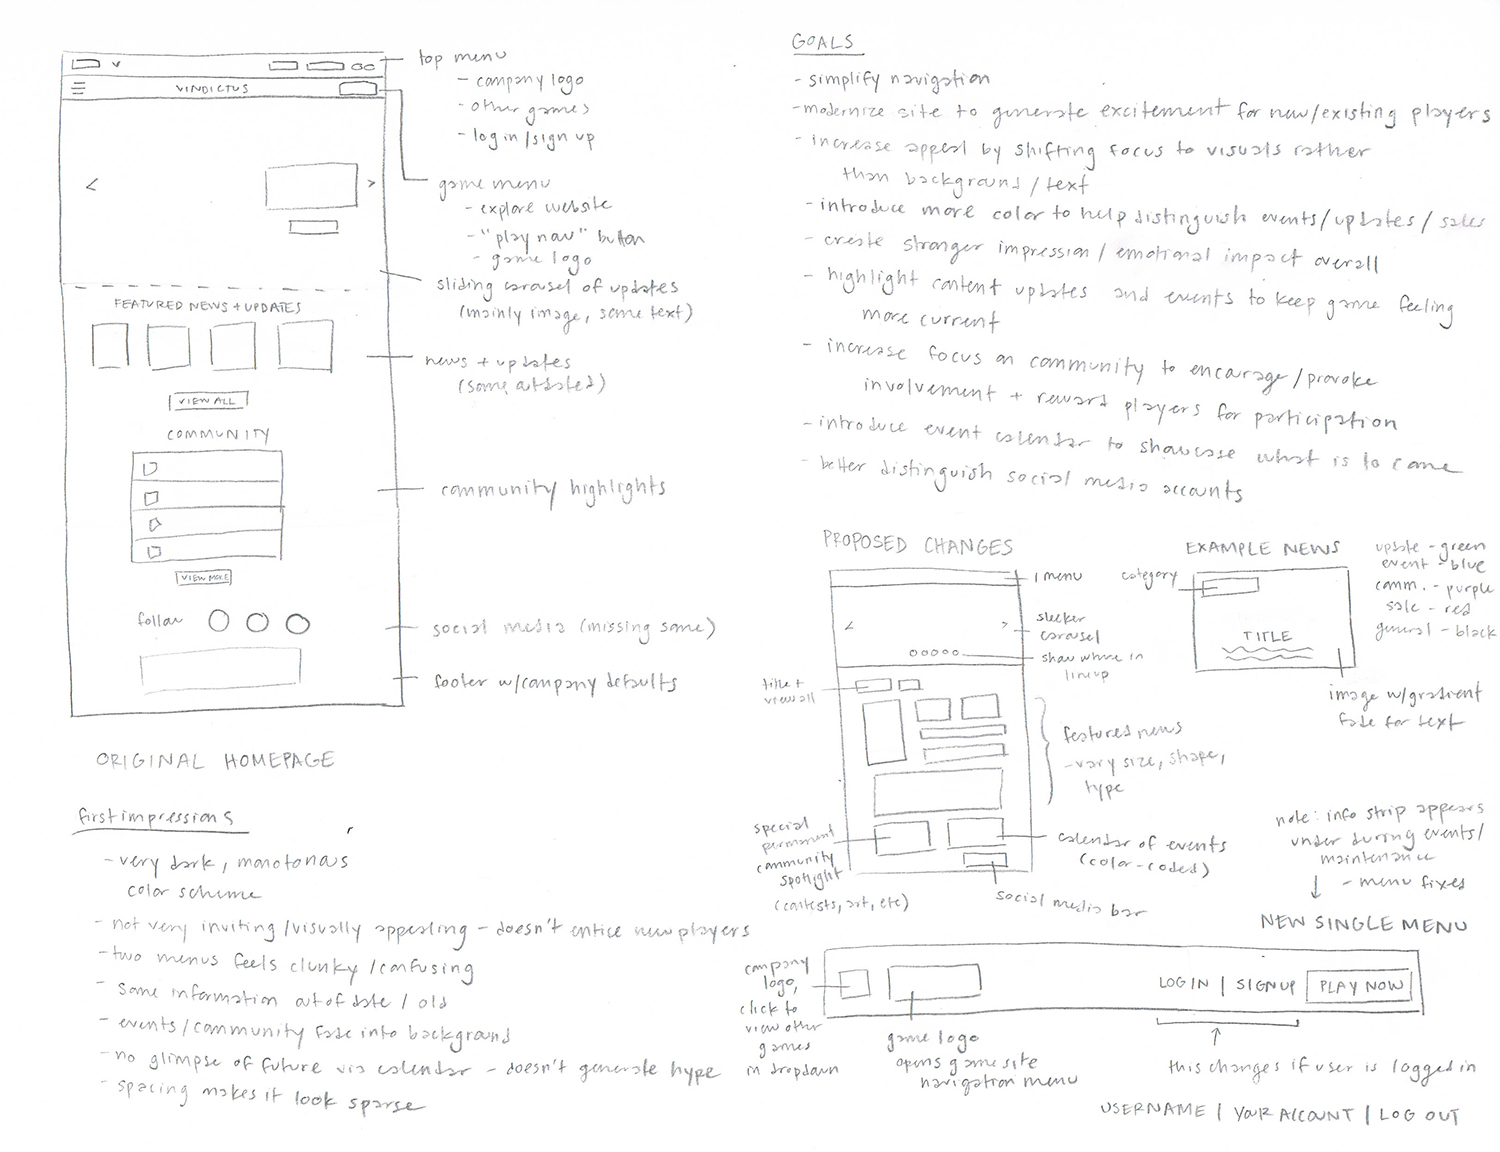 top menu
- company logo
- other games
- log in/sign up
VINDICTUS
game menu
- explore website
- "play now" button
- game logo
sliding carousel of updates
(mainly image, some text)
FEATURED NEWS + UPDATES
news + updates
(some outdated)
VIEW ALL
COMMUNITY
community highlights
VIEW MORE
follow
social media (missing some)
footer w/company defaults
ORIGINAL HOMEPAGE
first impressions
- very dark, monotonous
color scheme
- not very inviting/visually appealing - doesn't entice new players
- two menus feels clunky/confusing
- some information out of date/old
- events/community fade into background
- no glimpse of future via calendar - doesn't generate hype
- spacing makes it look sparse
GOALS
- simplify navigation
- modernize site to generate excitement for new/existing players
- increase appeal by shifting focus to visuals rather
than background/text
- introduce more color to help distinguish events/updates/sales
- create stronger impression/emotional impact overall
- highlight content updates and events to keep game feeling
more current
- increase focus on community to encourage/provoke
involvement + reward players for participation
- introduce event calendar to showcase what is to come
- better distinguish social media accounts
PROPOSED CHANGES
1 menu
sleeker
carousel
show where in
lineup
title +
view all
featured news
- vary size, shape,
type
special
permanent
community
spotlight
(contests, art, etc)
calendar of events
(color-coded)
social media bar
EXAMPLE NEWS
category
TITLE
update - green
event - blue
comm. - purple
sale - red
general - black
image w/gradient
fade for text
note: info strip appears
under during events/
maintenance
- menu fixes
NEW SINGLE MENU
company
logo,
click to
view other
games
in dropdown
game logo
opens game site
navigation menu
LOG IN | SIGN UP
PLAY NOW
this changes if user is logged in
USERNAME | YOUR ACCOUNT | LOG OUT